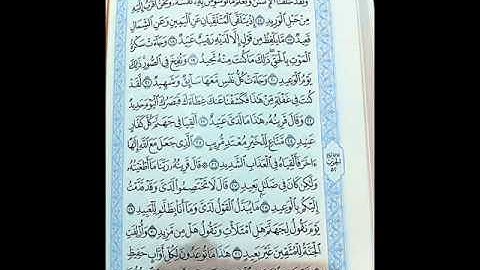 ولقد خلقنا الإنسن ونعلم ما توسوس به نفسه ونحن أقرب إليه
من حبل الوريد ١٦ إذ يتلقى المتلقيان عن اليمين وعن الشمال
قعيد ١٧ ما يلفظ من قول إلا لديه رقيب عتيد ١٨ وجاءت سكرة
الموت بالحق ذلك ما كنت منه تحيد ١٩ ونفخ في الصور ذلك
يوم الوعيد ٢٠ وجاءت كل نفس معها سائق وشهيد ٢١ لقد
كنت في غفلة من هذا فكشفنا عنك غطاءك فبصرك اليوم حديد
٢٢ وقال قرينه هذا ما لدي عتيد ٢٣ ألقيا في جهنم كل كفار
عنيد ٢٤ مناع للخير معتد مريب ٢٥ الذي جعل مع الله إلها
ءاخر فألقياه في العذاب الشديد ٢٦ قال قرينه ربنا ما أطغيته
ولكن كان في ضلل بعيد ٢٧ قال لا تختصموا لدي وقد قدمت
إليكم بالوعيد ٢٨ ما يبدل القول لدي وما أنا بظلم للعبيد ٢٩
يوم نقول لجهنم هل امتلأت وتقول هل من مزيد ٣٠ وأزلفت
الجنة للمتقين غير بعيد ٣١ هذا ما توعدون لكل أواب حفيظ